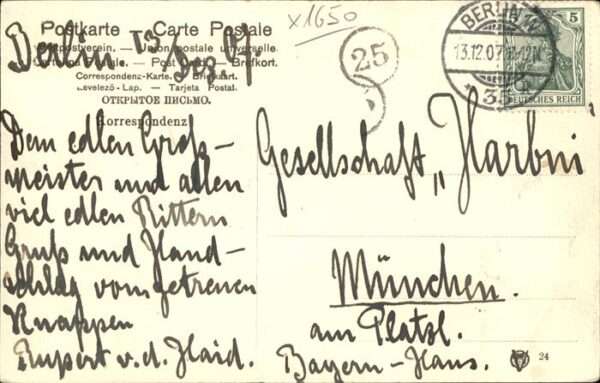 x1650
Postkarte — Carte Postale
Weltpostverein. — Union postale universelle
Carta Postale. — Post Card. — Brefkort.
Correspondenz-Karte. — Briefkaart.
Levelező-Lap. — Tarjeta Postal.
ОТКРЫТОЕ ПИСЬМО.
Korrespondenz
Berlin 13/ Dez. 07.
25
BERLIN W
13.12.07
35
5
DEUTSCHES REICH
Dem edlen Groß-
meister und allen
viel edlen Rittern
Gruß und Hand-
schlag vom getreuen
Knappen
Rupert v. d. Haid.
Gesellschaft „Harbni
München.
am Platzl.
Bayern-Haus.
24